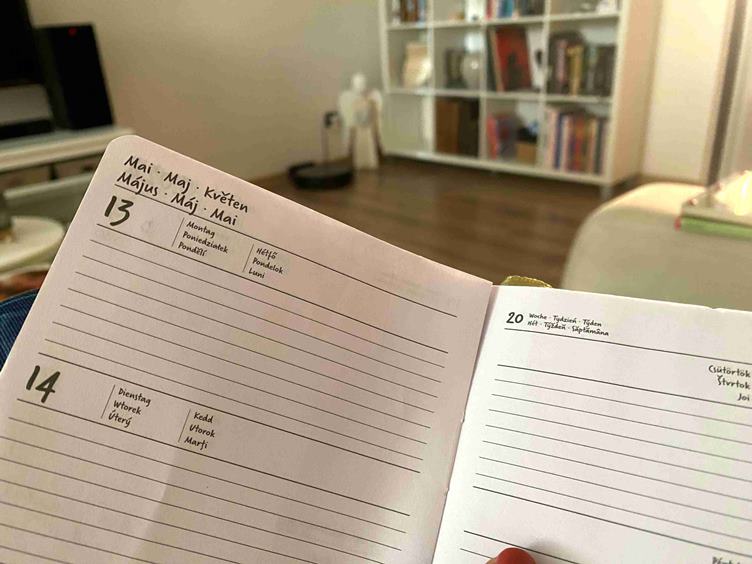 Mai · Maj · Květen
Május · Máj · Mai
13
Montag
Poniedziałek
Pondělí
Hétfő
Pondelok
Luni
14
Dienstag
Wtorek
Úterý
Kedd
Utorok
Marți
20
Woche · Tydzień · Týden
Hét · Týždeň · Săptămâna
Csütörtök
Štvrtok
Joi